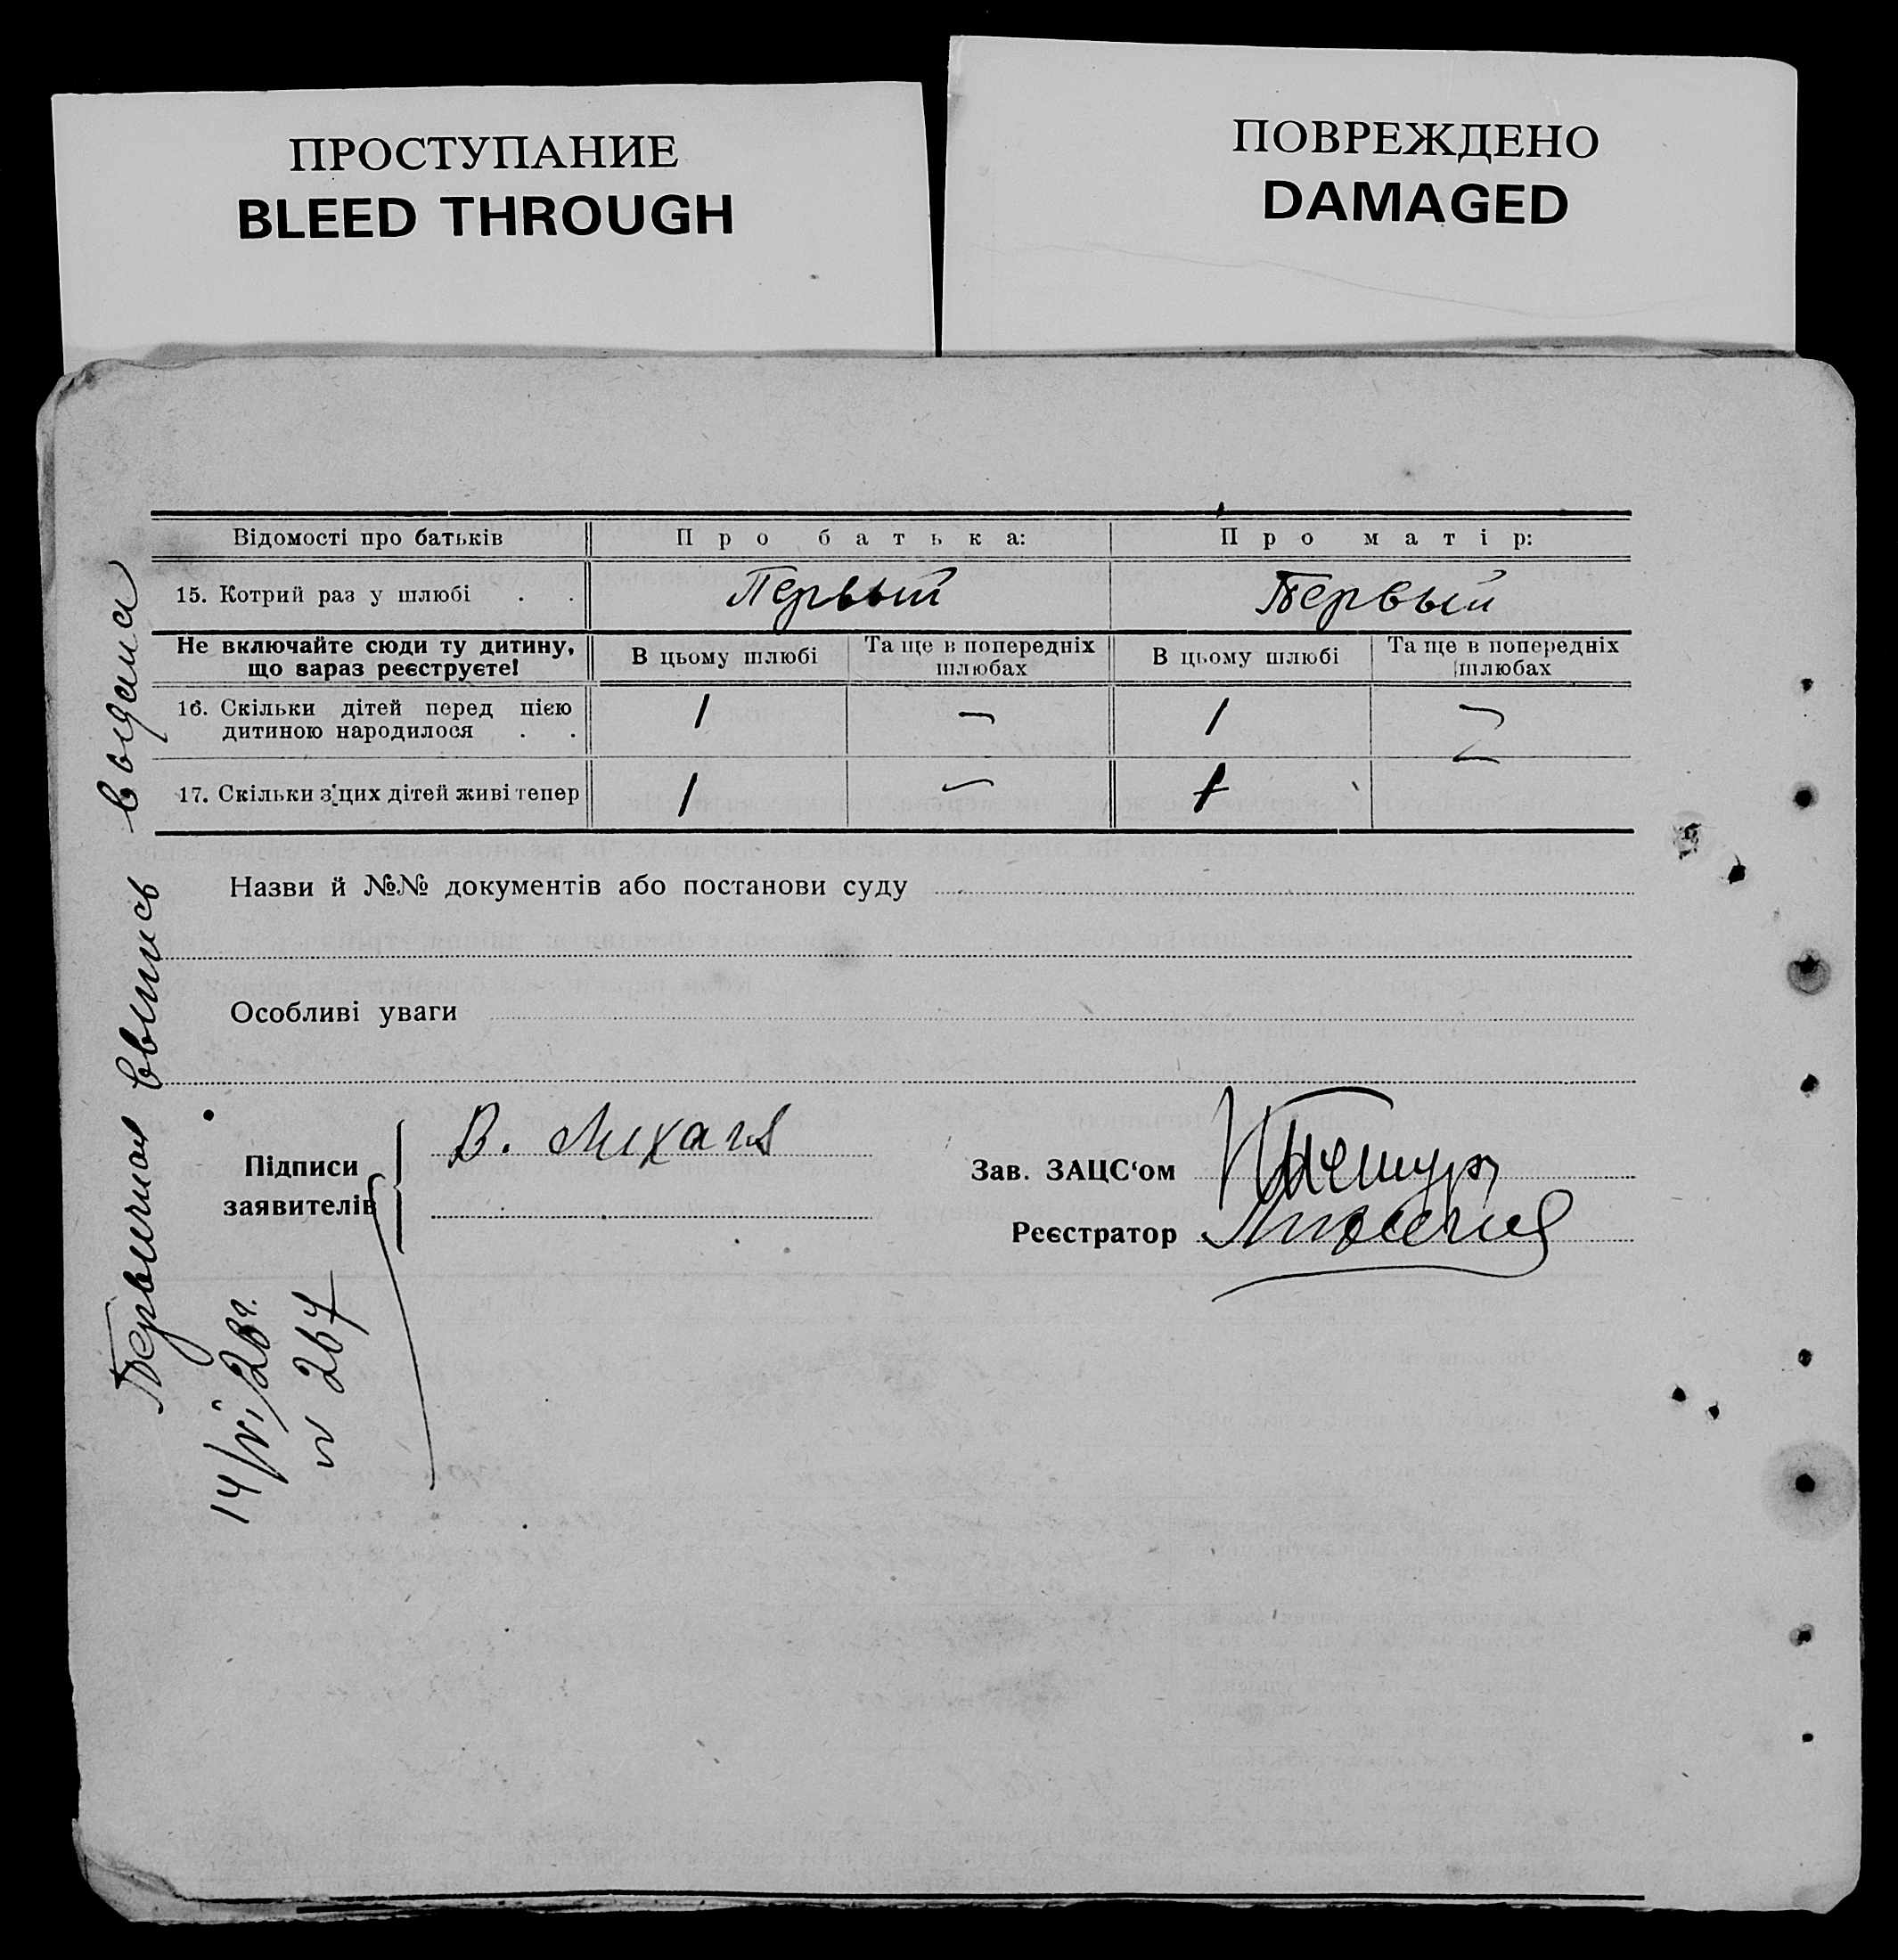 ПРОСТУПАНИЕ
BLEED THROUGH
ПОВРЕЖДЕНО
DAMAGED
Відомості про батьків
Про батька:
Про матір:
15. Котрий раз у шлюбі . .
Первый
Первый
Не включайте сюди ту дитину,
що зараз реєструєте!
В цьому шлюбі
Та ще в попередніх
шлюбах
В цьому шлюбі
Та ще в попередніх
шлюбах
16. Скільки дітей перед цією
дитиною народилося . .
1
—
1
—
17. Скільки з цих дітей живі тепер
1
—
1
Назви й №№ документів або постанови суду
Особливі уваги
Підписи
заявителів
В.
Зав. ЗАЦС‘ом
Реєстратор
Первичная выпись выдана
14/VI/28г.
№ 264